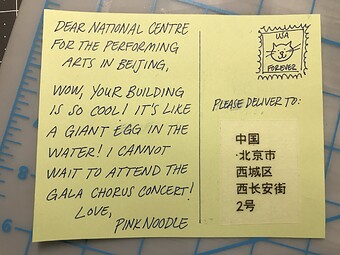 DEAR NATIONAL CENTRE
FOR THE PERFORMING
ARTS IN BEIJING,
WOW, YOUR BUILDING
IS SO COOL! IT'S LIKE
A GIANT EGG IN THE
WATER! I CANNOT
WAIT TO ATTEND THE
GALA CHORUS CONCERT!
LOVE,
PINK NOODLE
USA
FOREVER
PLEASE DELIVER TO:
中国
北京市
西城区
西长安街
2号
6